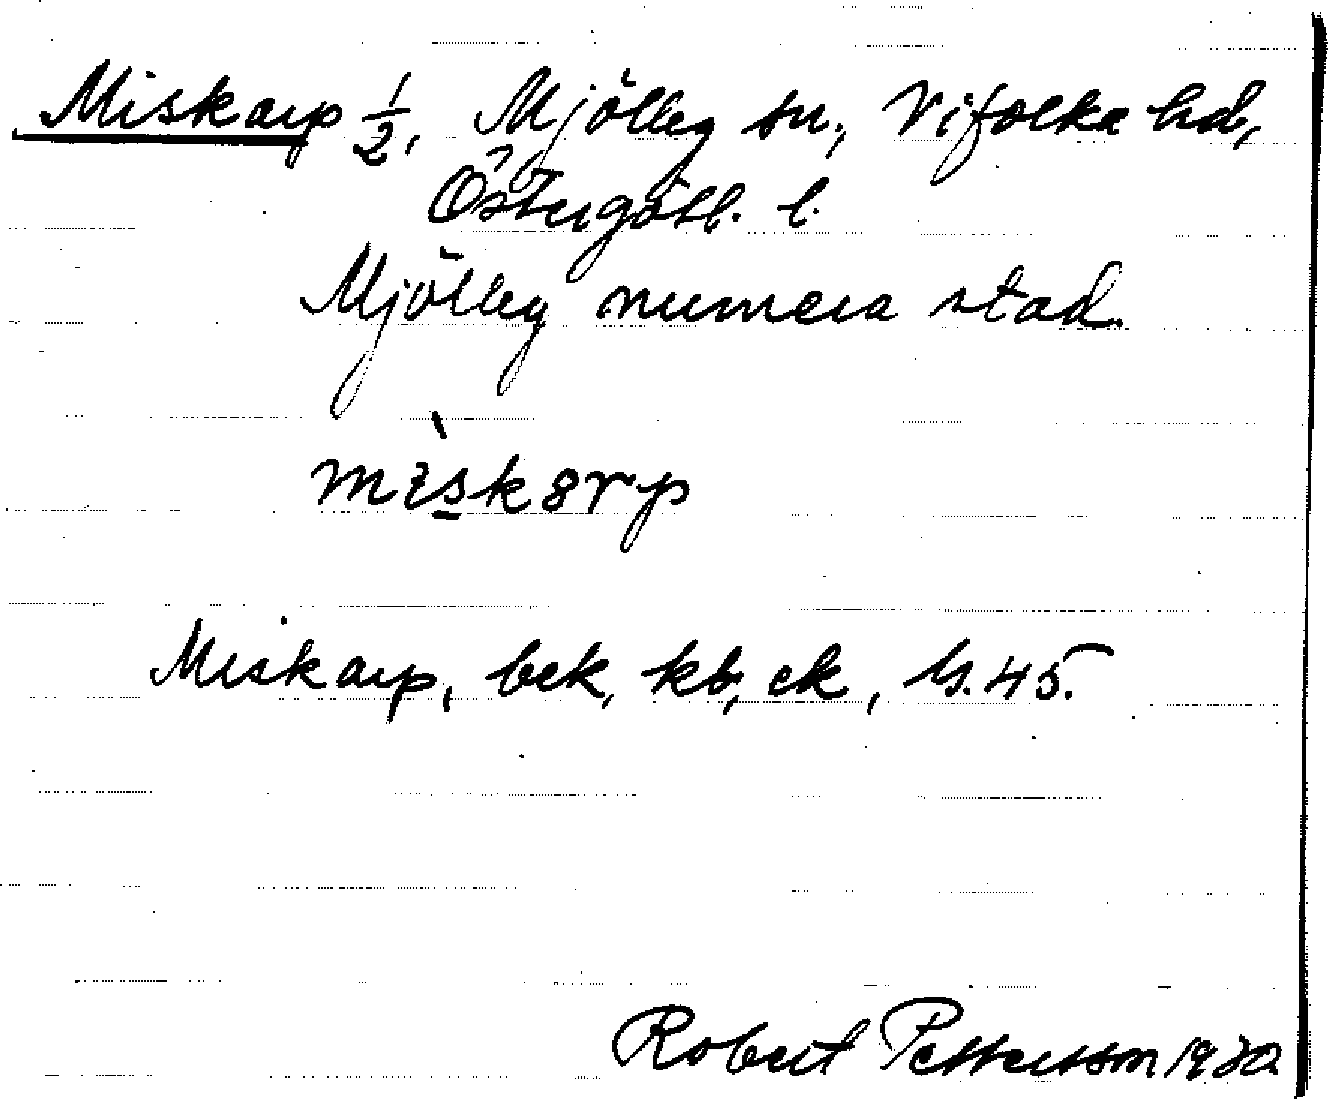 Miskarp 1/2, Mjölby sn, Vifolka hd,
Östergötl. l.
Mjölby numera stad.
Miskarp, bek, kb, ek, Js. 45.
Robert Pettersson 1930